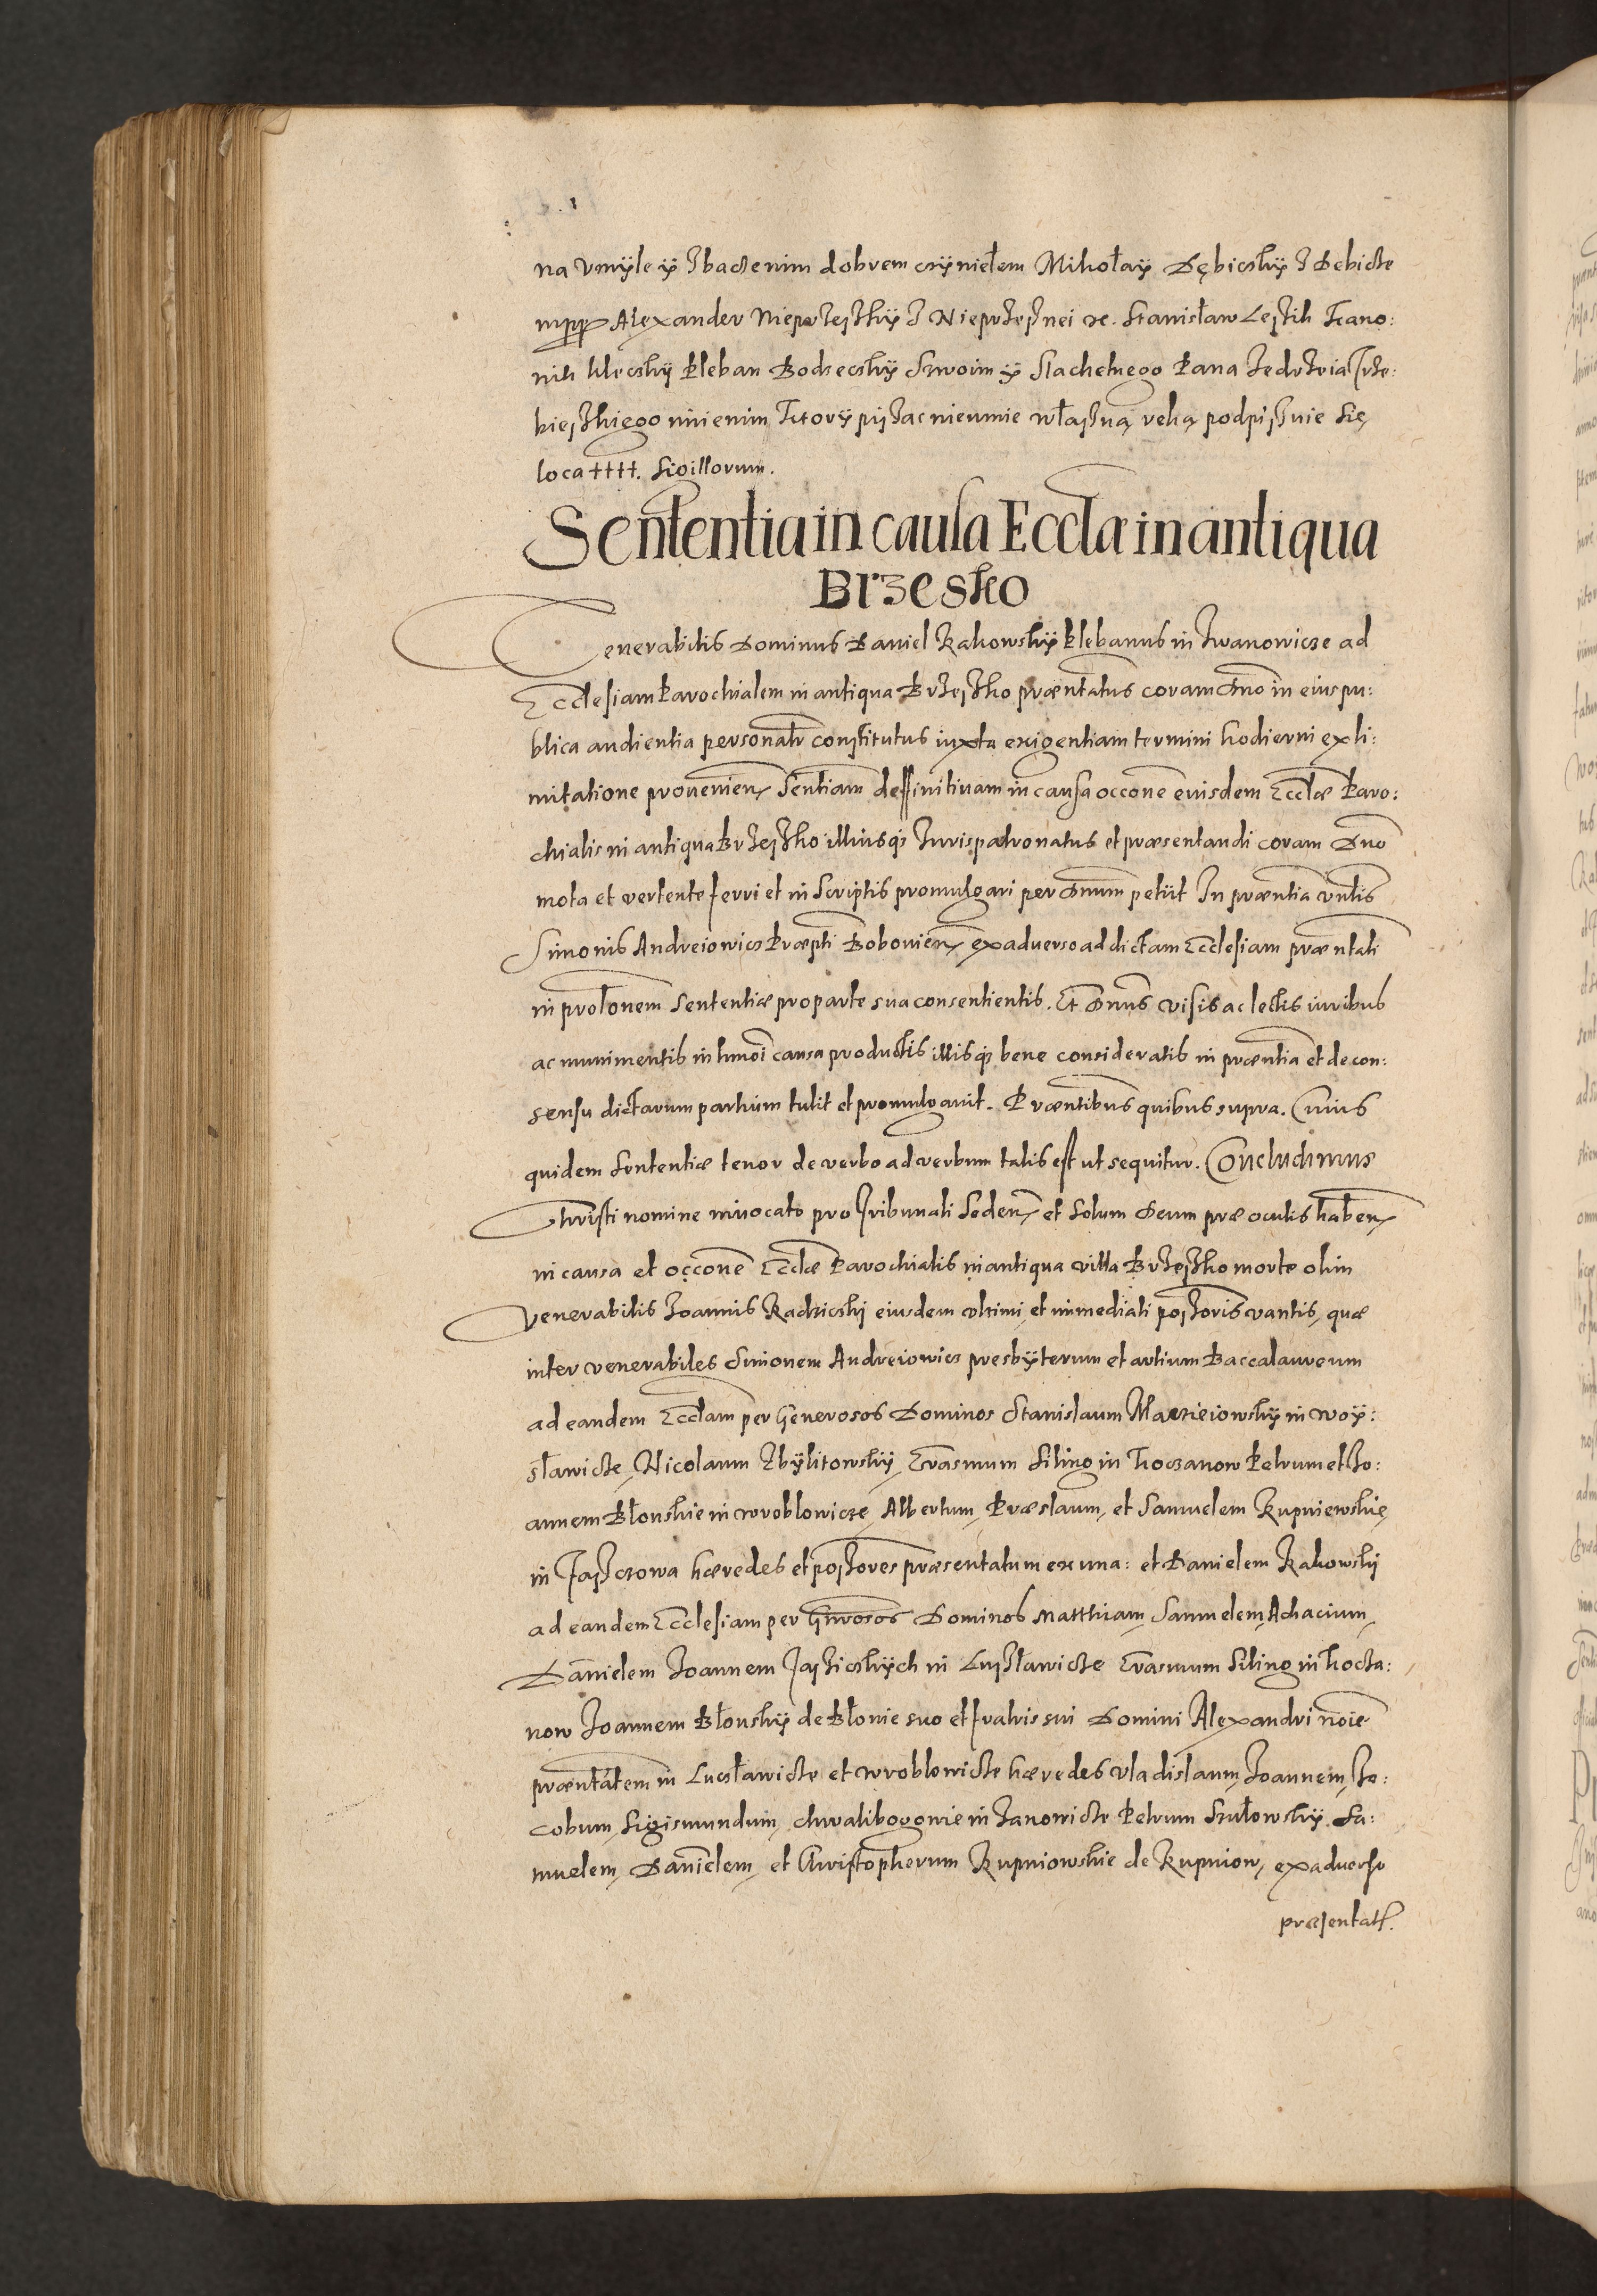 na vmÿle ÿ zbaczenim dobrem cżÿniełem Mikołaÿ Dębicskÿ z Debicze
mppp Alexander Nieprzeskÿ z Nieprzesnei rc. Stanisław Lessik Kano:
nik klecskÿ Pleban Bodzecskÿ Swoim ÿ Slachetnego Pana Jedrzeia Trze:
bieskiego imienim Ktorÿ pisac nieumie własną reką podpisuie się
loca ††††. Sigillorum.
Sententia in causa Eccla in antiqua
Brzesko
Venerabilis Dominus Daniel Rakowskÿ Plebanus in Iwanowicze ad
Ecclesiam Parochialem in antiqua Brzesko præntatus coram Dno in eius pu:
blica audientia personatr constitutus iuxta exigentiam termini hodierni ex li:
mitatione prouenien Sentiam deffinitiuam in causa occone eiusdem Ecctæ Paro:
chialis in antiqua Brzesko illiusqs Iurispatronatus et præsentandi coram Dno
mota et vertente ferri et in Scriptis promulgari per Dnum petiit In præntia vntlis
Simonis Andreiowicz Præpti Bobouien ex aduerso ad dictam Ecclesiam præntati
in protonem Sententiæ pro parte sua consentientis. Et Dnus visis ac lectis iuribus
ac munimentis in hmoi causa productis illisqs bene consideratis in præntia et de con:
sensu dictarum partium tulit et promulgauit. Præntibus quibus supra. Cuius
quidem Sententiæ tenor de verbo ad verbum talis est ut sequitur. Concludimus
Christi nomine inuocato pro Tribunali Seden et Solum Deum præ oculis haben
in causa et occone Ecctæ Parochialis in antiqua villa Brzesko morte olim
Venerabilis Joannis Radzicskj eiusdem vltimi et immediati possoris vantis, quæ
inter venerabiles Simonem Andreiowicz presbÿterum et artium Baccalaureum
ad eandem Ecclam per Generosos Dominos Stanislaum Maczieiowskÿ in Woÿ:
sławicze, Nicolaum Zbÿlitowskÿ, Erasmum Siling in Koczanow Petrum et Jo:
annem Błonskie in Wroblowicze, Albertum, Præslaum, et Samuelem Rupniewskie
in Jasczowa hæredes et possores præsentatum ex una: et Danielem Rakowskj
ad eandem Ecclesiam per Gnrosos Dominos Matthiam, Samuelem, Achacium,
Danielem Joannem Jasicskÿch in Lusławicze Erasmum Siling in Kocza:
now Joannem Błonskÿ de Błonie suo et fratris sui Domini Alexandri noie
præntatem in Lucsławicze et Wroblowicze hæredes Vladislaum, Joannem, Ja:
cobum, Sigismundum, chwalibogowie in Janowicze Petrum Szułowskÿ Sa:
muelem, Danielem, et Christopherum Rupniowskie de Rupniow, ex aduerso
præsentatt.